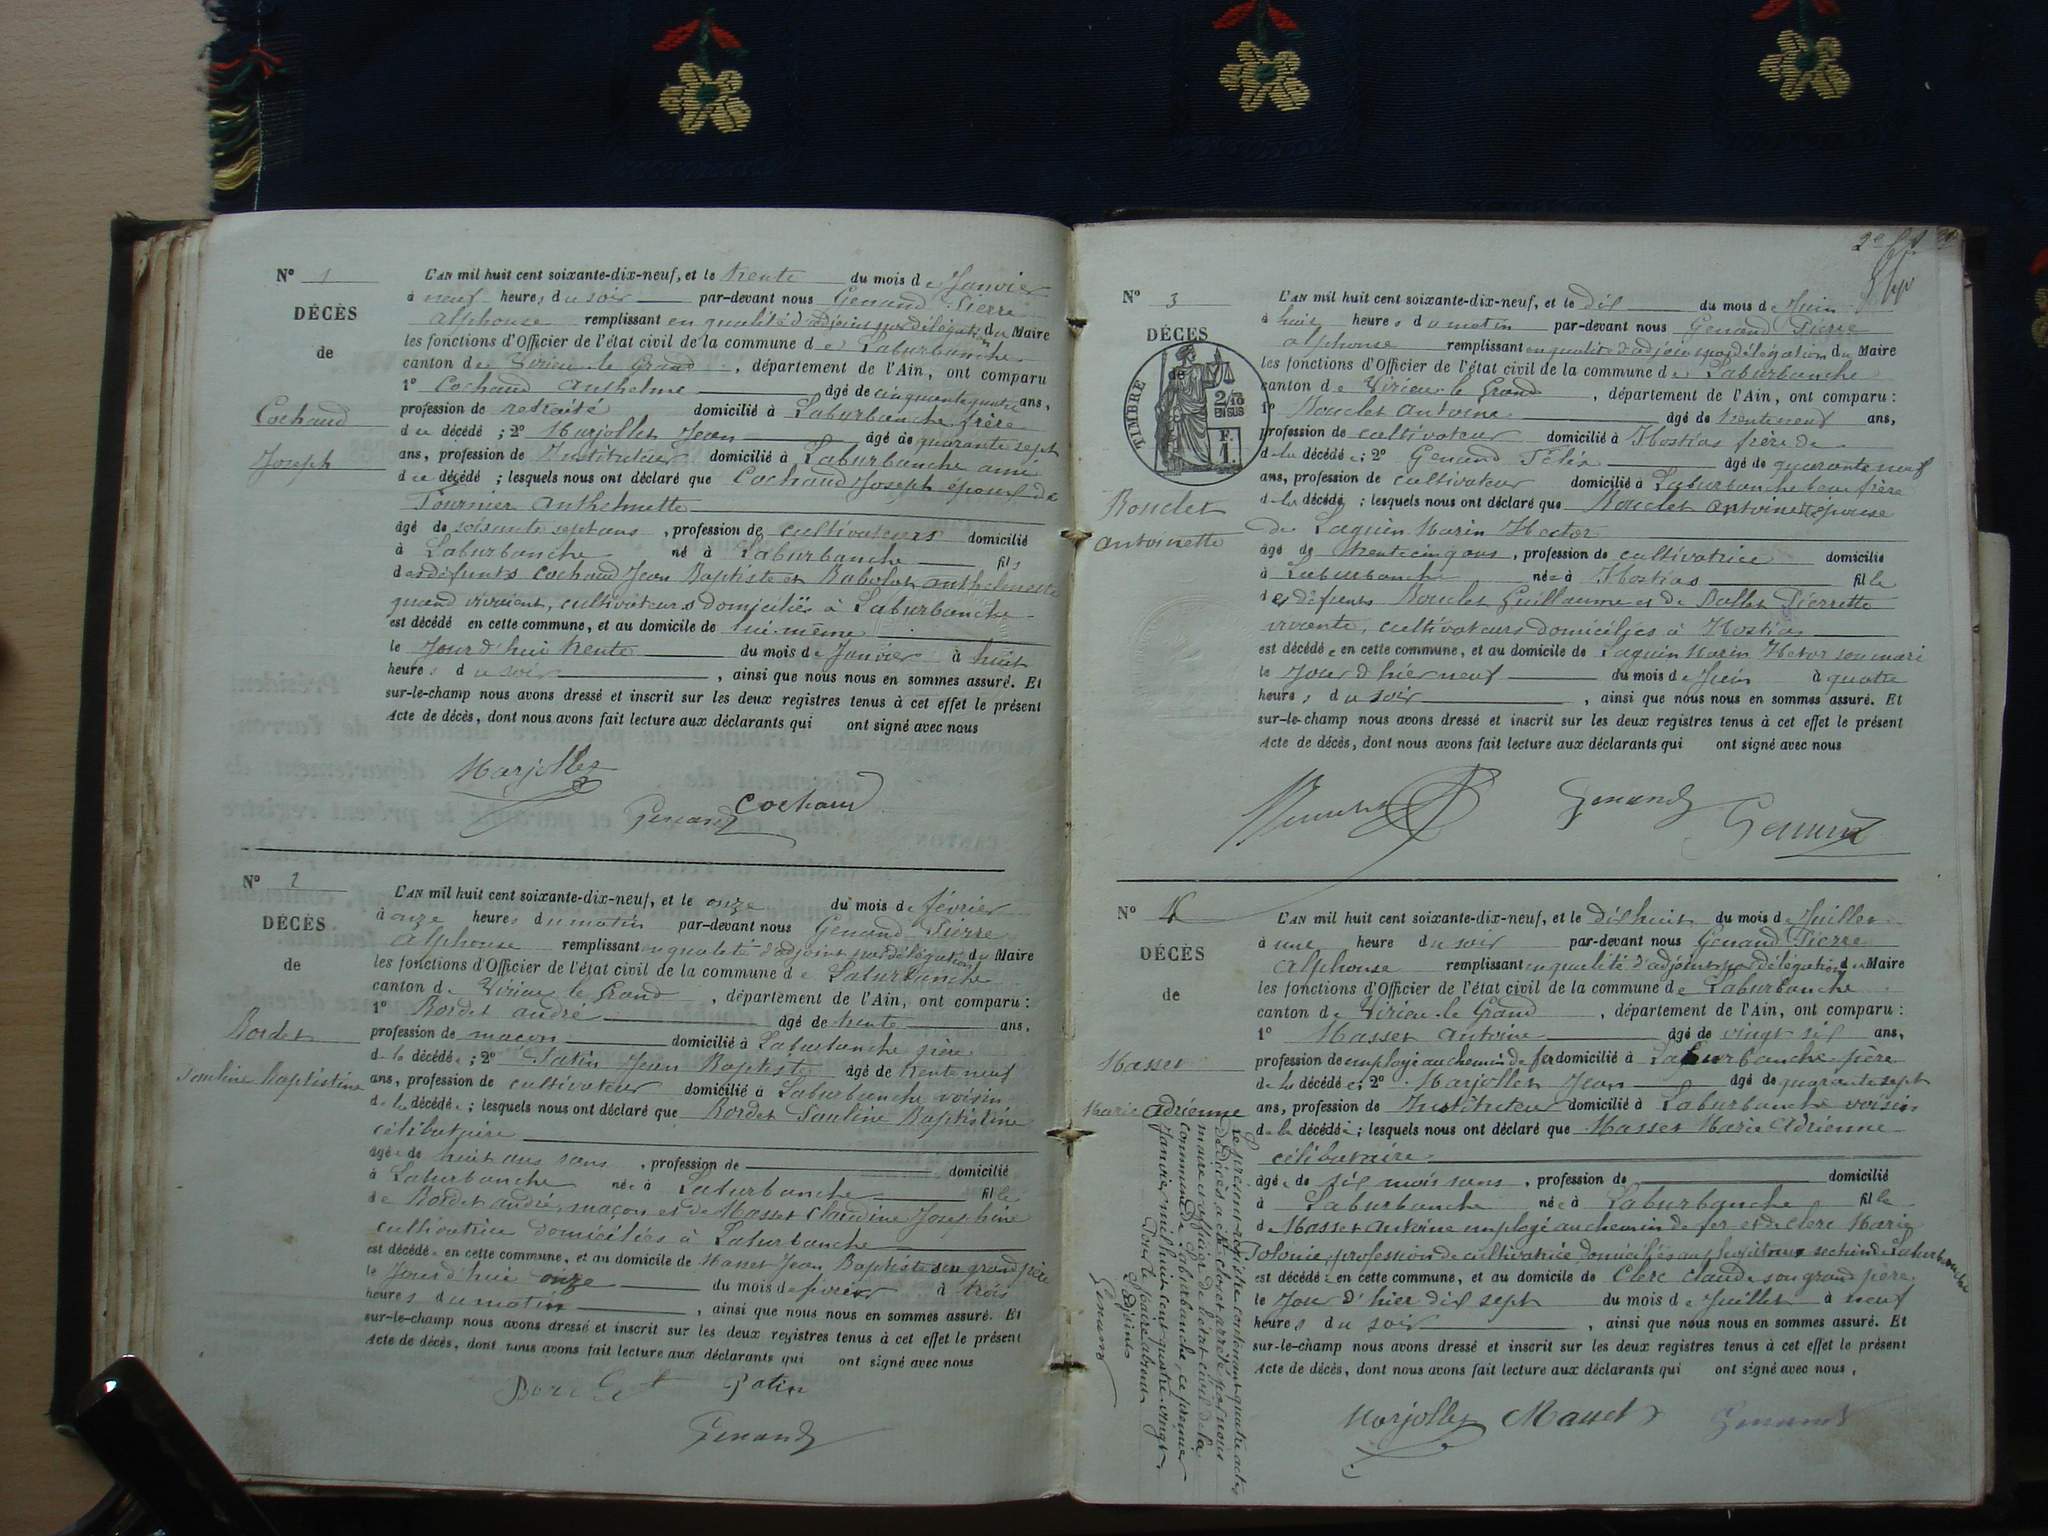 N° 1
DÉCÈS
de
Cochaud
Joseph
L'AN mil huit cent soixante-dix-neuf, et le trente du mois de Janvier
à neuf heures du soir par-devant nous Genand Pierre
Alphonse remplissant en qualité d'adjoint par délégation du Maire
les fonctions d'Officier de l'état civil de la commune de Laburbanche
canton de Virieu le Grand, département de l'Ain, ont comparu
1° Cochaud Anthelme âgé de cinquante quatre ans,
profession de retraité domicilié à Laburbanche frère
du décédé ; 2° Marjollet Jean âgé de quarante sept
ans, profession de Instituteur domicilié à Laburbanche ami
du décédé ; lesquels nous ont déclaré que Cochaud Joseph époux de
Fournier Anthelmette
âgé de soixante sept ans, profession de cultivateurs domicilié
à Laburbanche né à Laburbanche fils
des défunts Cochaud Jean Baptiste et Anthelmette
quand vivaient, cultivateurs domiciliés à Laburbanche
est décédé en cette commune, et au domicile de lui-même
le Jour d'hui trente du mois de Janvier à huit
heures du soir, ainsi que nous nous en sommes assuré. Et
sur-le-champ nous avons dressé et inscrit sur les deux registres tenus à cet effet le présent
Acte de décès, dont nous avons fait lecture aux déclarants qui ont signé avec nous
Marjollet
Genand Cochaud
N° 2
DÉCÈS
de
Bordet
Pauline Baptistine
L'AN mil huit cent soixante-dix-neuf, et le onze du mois de février
à onze heures du matin par-devant nous Genand Pierre
Alphonse remplissant en qualité d'adjoint par délégation du Maire
les fonctions d'Officier de l'état civil de la commune de Laburbanche
canton de Virieu le Grand, département de l'Ain, ont comparu :
1° Bordet André âgé de trente ans,
profession de maçon domicilié à Laburbanche père
de la décédée ; 2° Patin Jean Baptiste âgé de trente neuf
ans, profession de cultivateur domicilié à Laburbanche voisin
de la décédée ; lesquels nous ont déclaré que Bordet Pauline Baptistine
célibataire
âgée de huit ans sans, profession de domicilié
à Laburbanche née à Laburbanche fille
de Bordet André, maçon et de Masset Claudine Josephine
cultivatrice domiciliés à Laburbanche
est décédée en cette commune, et au domicile de Masset Jean Baptiste son grand père
le Jour d'hui onze du mois de février à trois
heures du matin, ainsi que nous nous en sommes assuré. Et
sur-le-champ nous avons dressé et inscrit sur les deux registres tenus à cet effet le présent
Acte de décès, dont nous avons fait lecture aux déclarants qui ont signé avec nous
Bordet Patin
Genand
N° 3
DÉCÈS
de
TIMBRE
2/10
EN SUS
F.
1.
Bouclet
Antoinette
L'AN mil huit cent soixante-dix-neuf, et le dix du mois de Juin
à huit heures du matin par-devant nous Genand Pierre
Alphonse remplissant en qualité d'adjoint par délégation du Maire
les fonctions d'Officier de l'état civil de la commune de Laburbanche
canton de Virieu le Grand, département de l'Ain, ont comparu :
1° Bouclet Antoine âgé de trente neuf ans,
profession de cultivateur domicilié à Hostias frère de
de la décédée ; 2° Genand Félix âgé de quarante neuf
ans, profession de cultivateur domicilié à Laburbanche beau frère
de la décédée ; lesquels nous ont déclaré que Bouclet Antoinette épouse
de Laguin Marin Hector
âgé de trente cinq ans, profession de cultivatrice domicilié
à Laburbanche née à Hostias fille
des défunts Bouclet Guillaume et de Ballet Pierrette
vivante, cultivateurs domiciliés à Hostias
est décédée en cette commune, et au domicile de Laguin Marin Hector son mari
le Jour d'hier neuf du mois de Juin à quatre
heures du soir, ainsi que nous nous en sommes assuré. Et
sur-le-champ nous avons dressé et inscrit sur les deux registres tenus à cet effet le présent
Acte de décès, dont nous avons fait lecture aux déclarants qui ont signé avec nous
Genand
Genand
N° 4
DÉCÈS
de
Masset
Marie Adrienne
L'AN mil huit cent soixante-dix-neuf, et le dix huit du mois de Juillet
à une heure du soir par-devant nous Genand Pierre
Alphonse remplissant en qualité d'adjoint par délégation du Maire
les fonctions d'Officier de l'état civil de la commune de Laburbanche
canton de Virieu le Grand, département de l'Ain, ont comparu :
1° Masset Antoine âgé de vingt six ans,
profession de employé au chemin de fer domicilié à Laburbanche père
de la décédée ; 2° Marjollet Jean âgé de quarante sept
ans, profession de Instituteur domicilié à Laburbanche voisin
de la décédée ; lesquels nous ont déclaré que Masset Marie Adrienne
célibataire
âgée de six mois sans, profession de domicilié
à Laburbanche née à Laburbanche fille
de Masset Antoine employé au chemin de fer et de Clerc Marie
profession de cultivatrice domiciliés section de Laburbanche
est décédée en cette commune, et au domicile de Clerc Claude son grand père
le Jour d'hier dix sept du mois de Juillet à neuf
heures du soir, ainsi que nous nous en sommes assuré. Et
sur-le-champ nous avons dressé et inscrit sur les deux registres tenus à cet effet le présent
Acte de décès, dont nous avons fait lecture aux déclarants qui ont signé avec nous,
Marjollet Masset Genand
Le présent registre contenant quatre actes
de décès a été clos et arrêté par nous
maire et officier de l'état civil de la
commune de Laburbanche, ce premier
Janvier mil huit cent quatre-vingt.
Pour le Maire absent
L'adjoint
Genand